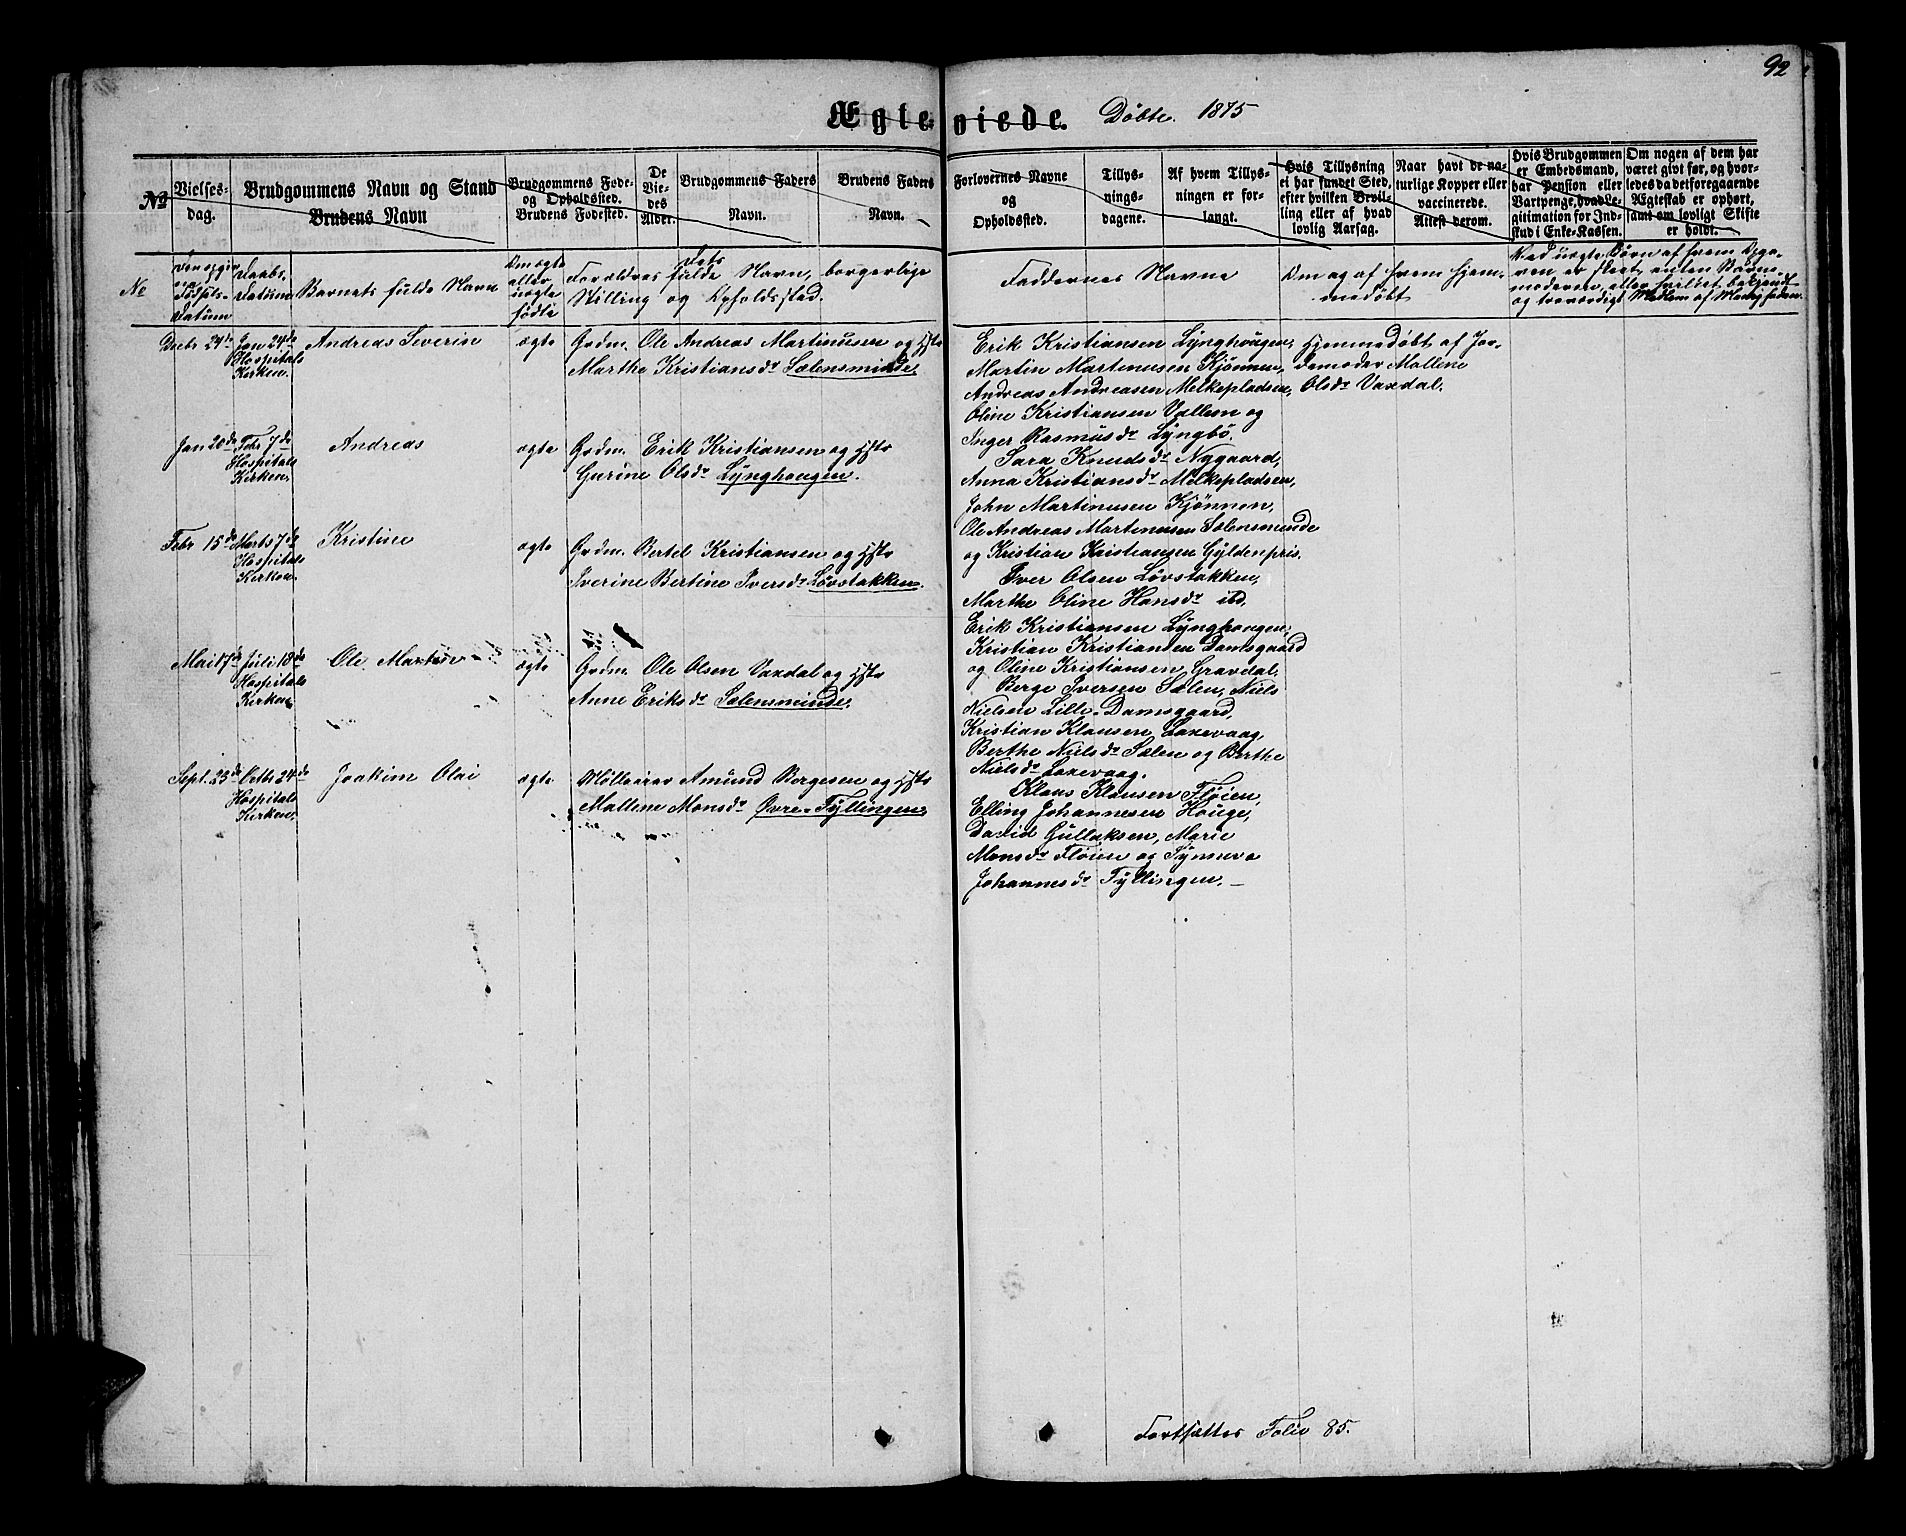 92
Ægteviede. Døbte. 1875
No
Vielses-
dag.
Brudgommens Navn og Stand
Brudens Navn
Brudgommens Føde-
og Opholdssted.
Brudens Fødested.
De
Vie-
des
Alder.
Brudgommens Faders
Navn.
Brudens Faders
Navn.
Forlovernes Navne
og
Opholdssted.
Tillys-
nings-
dagene.
Af hvem Tillys-
ningen er for-
langt.
Hvis Tillysning
ei har fundet Sted,
efter hvilken Bevil-
ling eller af hvad
lovlig Aarsag.
Naar havt de na-
turlige Kopper eller
vaccinerede.
Attest derom.
Hvis Brudgommen
er Embedsmand,
har Pension eller
Vartpenge, hvad Le-
gitimation for Ind-
skud i Enke-Kassen.
Om nogen af dem har
været givt før, og hvor-
ledes da det foregaaende
Ægteskab er ophørt,
samt om lovligt Skifte
er holdt.
No
Den opgivne
Fødsels-
datum
Daabs-
datum
Barnets fulde Navn
Om ægte
eller
uægte
fødte
Forældres fulde Navn, borgerlige
Stilling og Opholdsstad.
Faddernes Navne
Om og af hvem hjem-
medøbt
Ved uægte Børn af hvem Opga-
ven er skeet, enten Barne-
moderen, eller hvilket bekjendt
og troværdigt Medlem af Menigheden.
Decbr 24de
Jan 24de
Hospitals
Kirken.
Andreas Severin
ægte
Grdm. Ole Andreas Martinusen og Hstr
Marthe Kristiansdr Sælensminde.
Erik Kristiansen Lynghougen,
Martin Martenusen Kjønnen,
Andreas Andreasen Melkepladsen,
Oline Kristiansen Vallem og
Inger Rasmusdr Lyngbø.
Hjemmedøbt af Jor-
demoder Mallene
Olsdr Vaxdal.
Jan 20de
Febr 7de
Hospitals
Kirken.
Andreas
ægte
Grdm. Erik Kristiansen og Hstr
Gurine Olsdr Lynghougen.
Sara Knudsdr Nygaard,
Anna Kristiansdr Melkepladsen,
John Martinusen Kjønnen,
Ole Andreas Martenusen Sælensminde
og Kristian Kristiansen Gyldenpris.
Febr 15de
Marts 7de
Hospitals
Kirken.
Kristine
ægte
Grdm. Bertel Kristiansen og Hstr
Iverine Bertine Iversdr Løvstakken.
Iver Olsen Løvstakken,
Marthe Oline Hansdr ibd,
Erik Kristiansen Lynghougen,
Kristian Kristiansen Damsgaard
og Oline Kristiansen Gravdal.
Mai 17de
Juli 18de
Hospitals
Kirken
Ole Martin
ægte
Grdm. Ole Olsen Vaxdal og Hstr
Anne Eriksdr Sælensminde.
Berge Iversen Sælen, Niels
Nielsen Lille-Damsgaard,
Kristian Klausen Laxevaag,
Berthe Nielsdr Sælen og Berthe
Nielsdr Laxevaag.
Sept. 23de
Octbr 24de
Hospitals
Kirken.
Joakim Olai
ægte
Mølleeier Amund Børgesen og Hstr
Mallene Monsdr Øvre-Fyllingen.
Klaus Klausen Fløien,
Elling Johannesen Houge,
David Gullaksen, Marie
Monsdr Fløien og Synneva
Johannesdr Fyllingen. –
Fortsættes Folio 85.